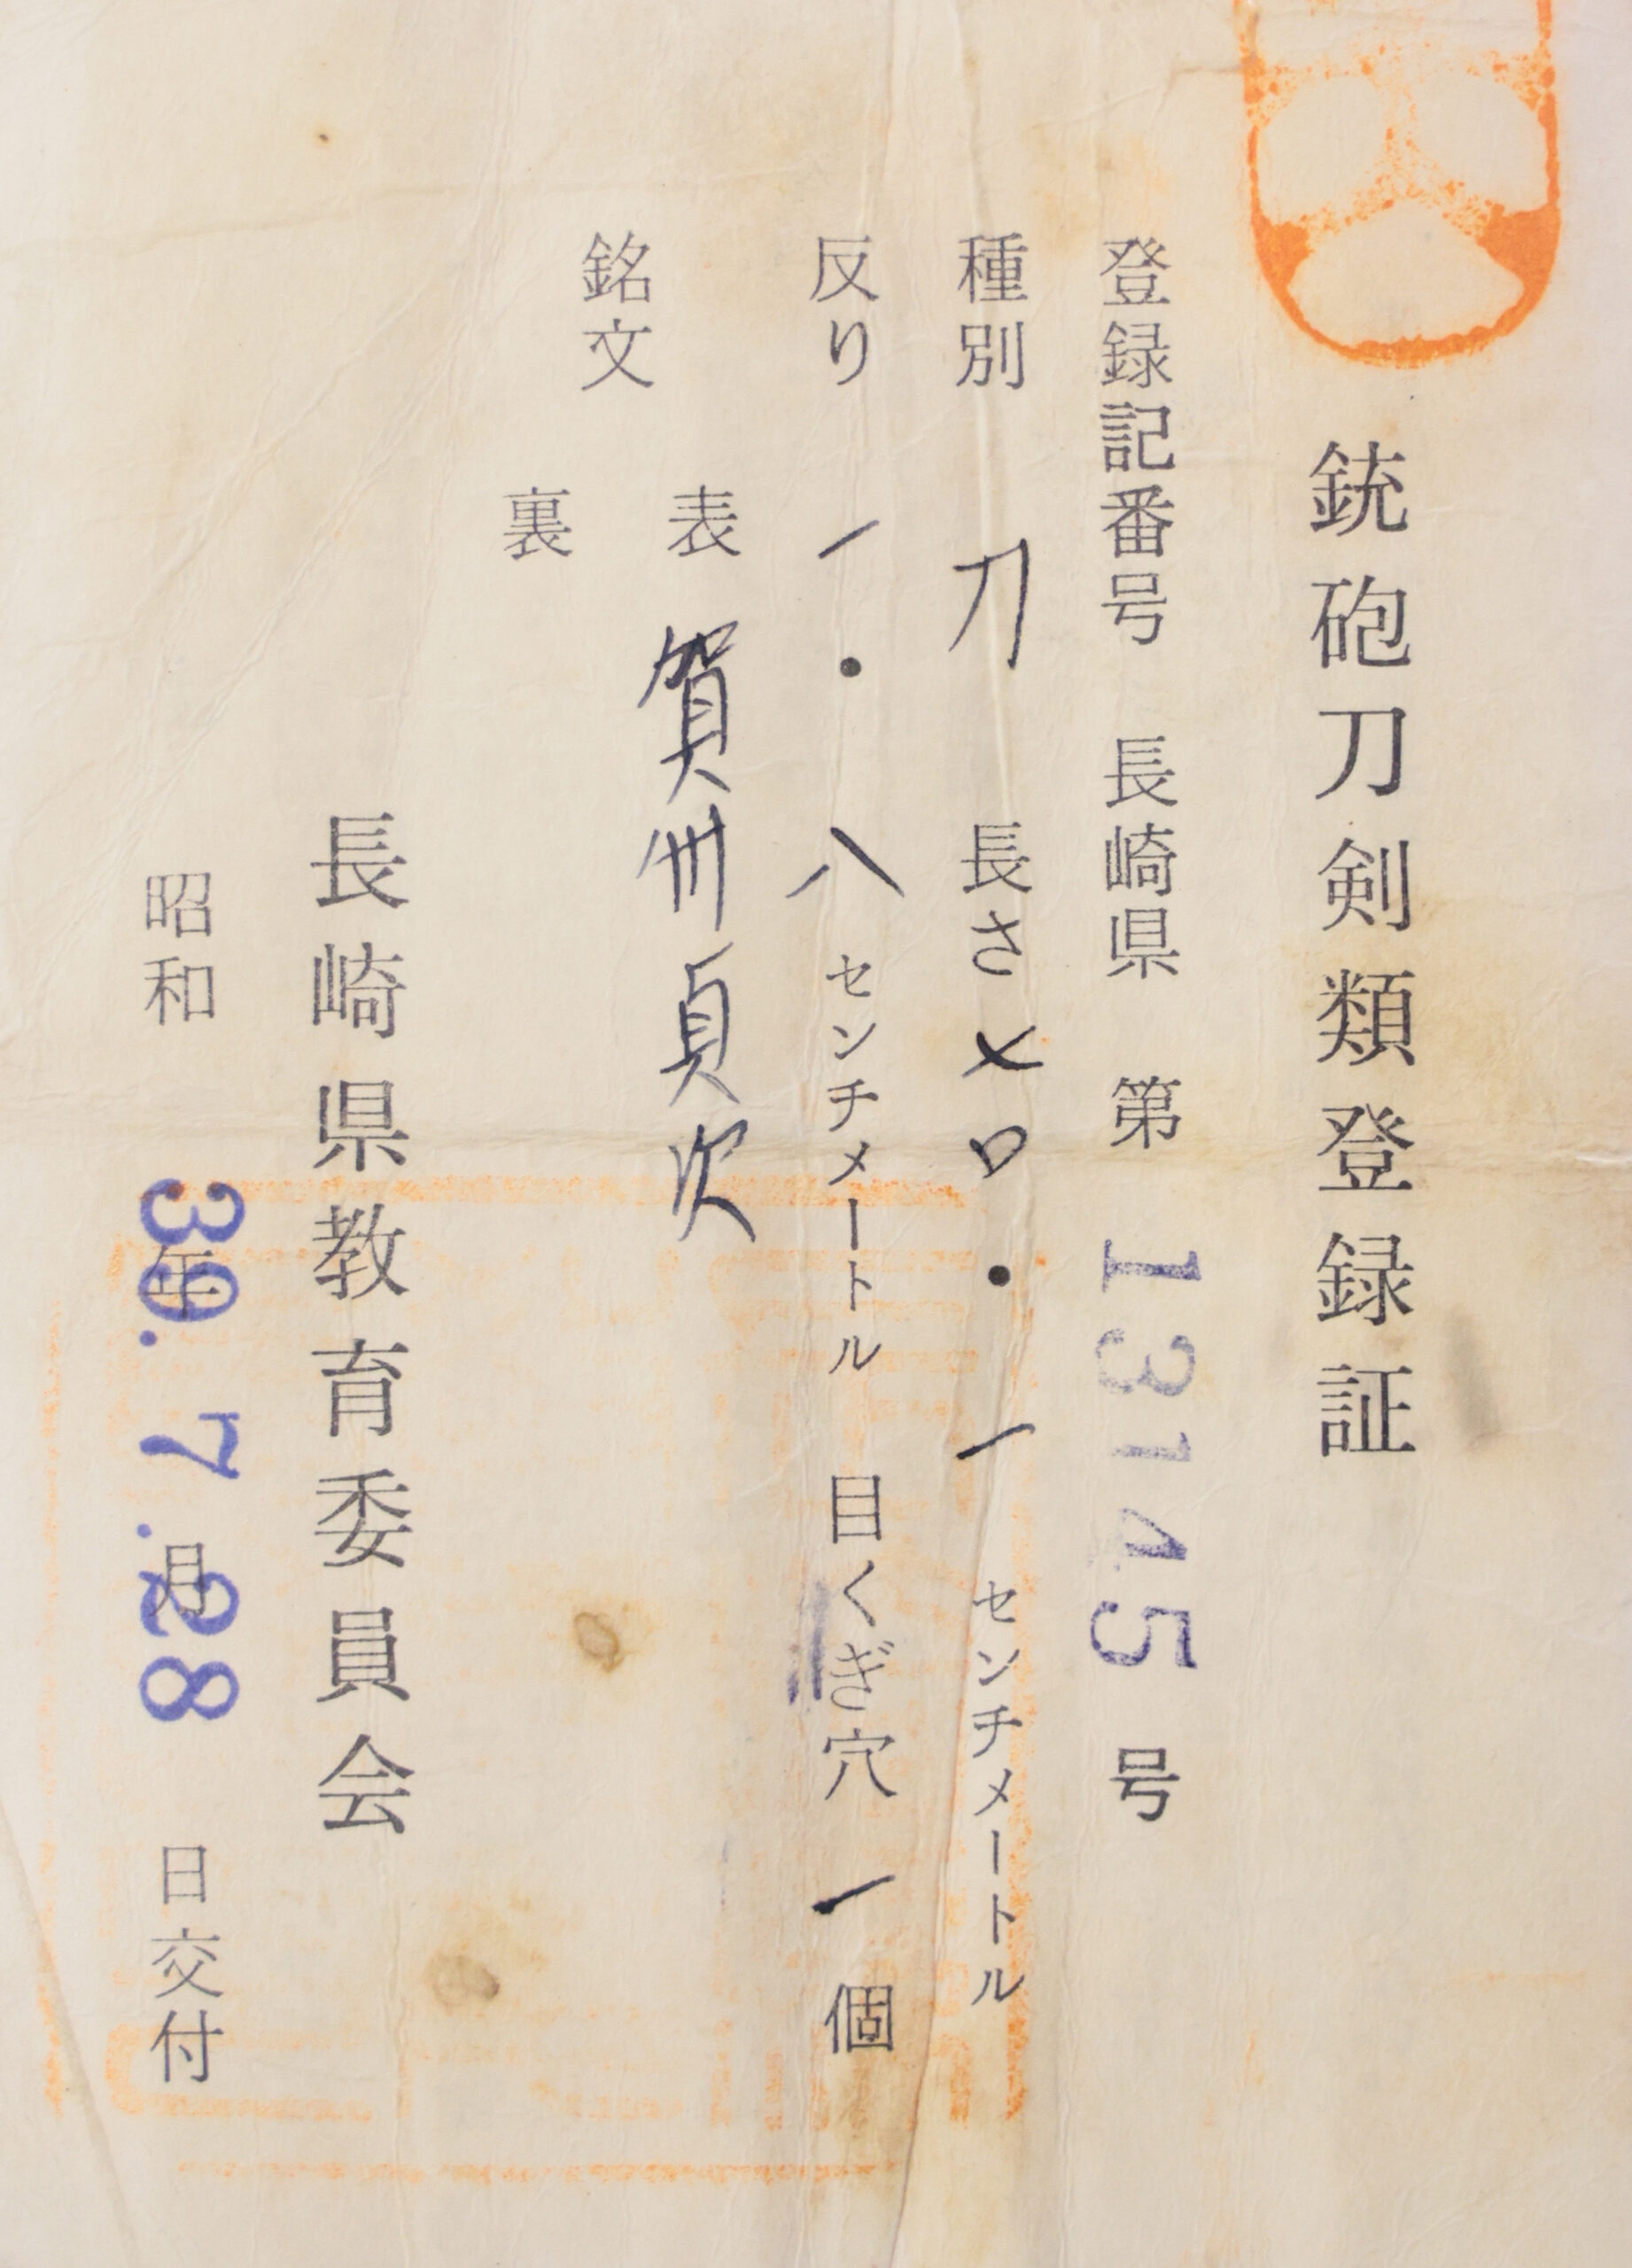 銃砲刀剣類登録証
登録記番号 長崎県 第 13145 号
種別 刀 長さ 七〇・一 センチメートル
反り 一・八 センチメートル 目くぎ穴 一 個
銘文
表 賀州貞次
裏
長崎県教育委員会
昭和 39.年 7.月 28 日交付